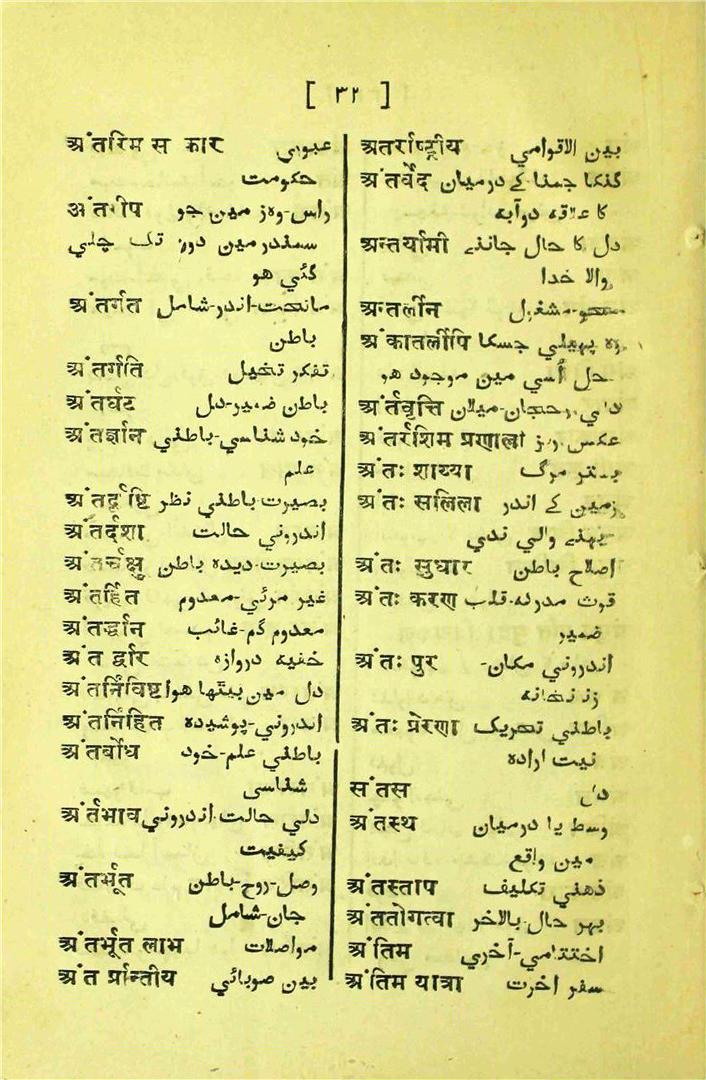 [ ٣٢ ]
अंतरिम स कार عبوري
حکومت
अंतरीप راس-وہ زمین جو
سمندر مین دور تک چلی
گئی هو
अंतर्गत ماتحت-اندر-شامل
باطن
अंतर्गति تفکر تخیل
अंतर्घट باطن ضمیر-دل
अंतर्ज्ञान خود شناسی-باطنی
علم
अंतर्दृष्टि بصیرت-باطنی نظر
अंतर्दशा اندرونی حالت
अंतर्चक्षु بصیرت-دیدہ باطن
अंतर्हित غیر مرئی-معدوم
अंतर्द्धान معدوم گم-غائب
अंत द्वार خفیہ دروازہ
अंतर्निविष्ट دل مین بیٹھا هوا
अंतर्निहित اندرونی-پوشیدہ
अंतर्बोध باطنی علم-خود
شناسی
अंर्तभाव دلی حالت-اندرونی
کیفیت
अंतर्भूत وصل-روح-باطن
جان-شامل
अंतर्भूत लाभ مواصلات
अंत र्प्रान्तीय بین صوبائی
अतर्राष्ट्रीय بین الاقوامی
अंतर्वेद گنگا جمنا کے درمیان
کا علاقہ دوآبہ
अन्तर्यामी دل کا حال جاننے
والا خدا
अन्तर्लीन محو-مشغول
अंकातर्लीपि وہ پہیلی جسکا
حل اُسی مین موجود هو
अंर्तवृत्ति رحجان-میلان
अंतर्रशिम प्रणाली عکس ریز
अंतः शाय्या بستر مرگ
अंतः सलिला زمین کے اندر
بہنے والی ندی
अंतः सुधार اصلاح باطن
अंतः करण قوت مدرکہ-قلب
ضمیر
अंतः पुर اندرونی مکان-
زنانخانہ
अंतः प्रेरणा باطنی تحریک
نیت ارادہ
संतस دل
अंतस्थ وسط یا درمیان
مین واقع
अंतस्ताप ذهنی تکلیف
अंततोगत्वा بہر حال-بالاخر
अंतिम اختتامی-آخری
अंतिम यात्रा سفر اخرت